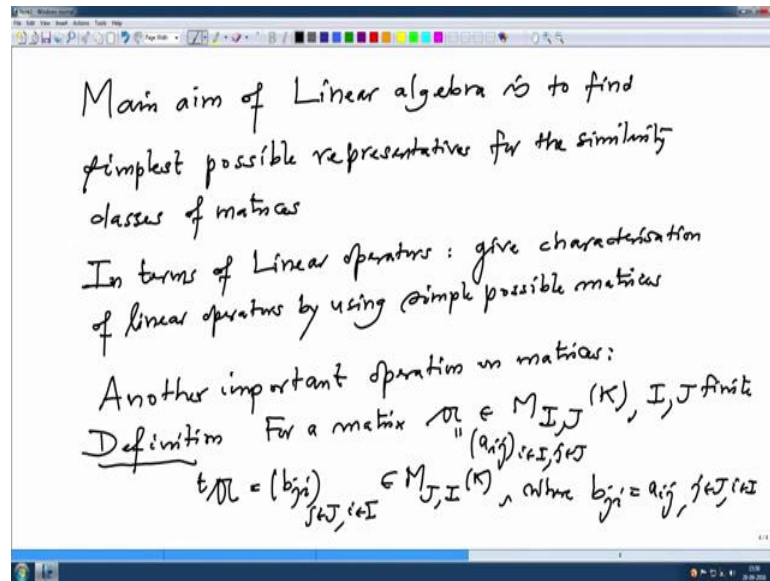 Main aim of Linear algebra is to find
simplest possible representatives for the similarity
classes of matrices
In terms of Linear operators : give characterisation
of linear operators by using simple possible matrices
Another important operation on matrices:
Definition For a matrix 𝔄 ∈ M_{I,J}(K), I, J finite
" (a_{ij})_{i∈I, j∈J}
t𝔄 = (b_{ji})_{j∈J, i∈I} ∈ M_{J,I}(K), where b_{ji} = a_{ij}, j∈J, i∈I